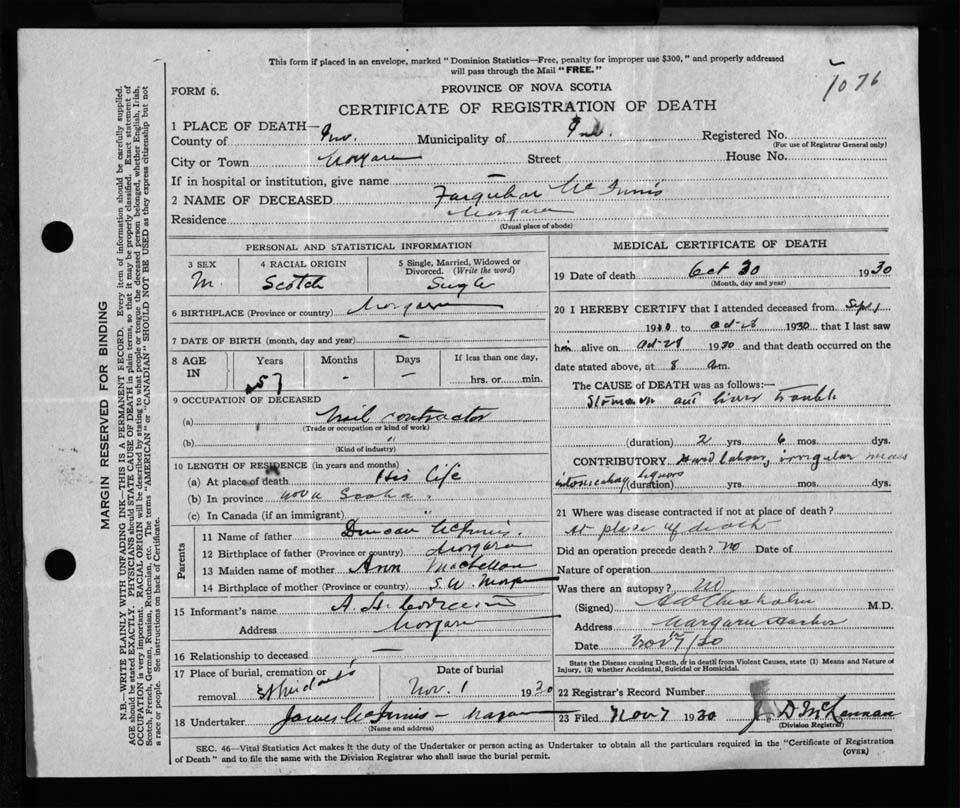 This form if placed in an envelope, marked "Dominion Statistics—Free, penalty for improper use $300," and properly addressed
will pass through the Mail "FREE."
1076
FORM 6.
PROVINCE OF NOVA SCOTIA
CERTIFICATE OF REGISTRATION OF DEATH
1 PLACE OF DEATH—
County of Inv. Municipality of Inv. Registered No.
(For use of Registrar General only)
City or Town Margaree Street House No.
If in hospital or institution, give name —
2 NAME OF DECEASED Farquhar McInnis
Residence Margaree
(Usual place of abode)
PERSONAL AND STATISTICAL INFORMATION
3 SEX 4 RACIAL ORIGIN 5 Single, Married, Widowed or Divorced. (Write the word)
M. Scotch Single
6 BIRTHPLACE (Province or country) Margaree
7 DATE OF BIRTH (month, day and year) —
8 AGE IN Years Months Days If less than one day,
57 — — hrs. or min.
9 OCCUPATION OF DECEASED
(a) Mail contractor
(Trade or occupation or kind of work)
(b) "
(Kind of industry)
10 LENGTH OF RESIDENCE (in years and months)
(a) At place of death His life
(b) In province Nova Scotia.
(c) In Canada (if an immigrant) "
Parents
11 Name of father Duncan McInnis.
12 Birthplace of father (Province or country) Margaree
13 Maiden name of mother Ann MacLellan
14 Birthplace of mother (Province or country) S.W. Margaree
15 Informant's name A. H.
Address Margaree
16 Relationship to deceased —
17 Place of burial, cremation or removal Date of burial
Nov. 1 1930
18 Undertaker James McInnis — Margaree
(Name and address)
MEDICAL CERTIFICATE OF DEATH
19 Date of death Oct 30 1930
(Month, day and year)
20 I HEREBY CERTIFY that I attended deceased from Sept 1
1930 to Oct-28 1930 that I last saw
him alive on Oct-28 1930 and that death occurred on the
date stated above, at 8 a.m.
The CAUSE OF DEATH was as follows:—
Stomach and liver trouble
(duration) 2 yrs. 6 mos. dys.
CONTRIBUTORY Hard labour, irregular meals
intoxicating liquors (duration) yrs. mos. dys.
21 Where was disease contracted if not at place of death?
at place of death
Did an operation precede death? no Date of
Nature of operation
Was there an autopsy? no
(Signed) Chisholm M.D.
Address Margaree Harbor
Date Nov 7/30
State the Disease causing Death, or in death from Violent Causes, state (1) Means and Nature of
Injury, (2) whether Accidental, Suicidal or Homicidal.
22 Registrar's Record Number
23 Filed Nov 7 1930 J. D McLennan
(Division Registrar)
SEC. 46—Vital Statistics Act makes it the duty of the Undertaker or person acting as Undertaker to obtain all the particulars required in the "Certificate of Registration
of Death" and to file the same with the Division Registrar who shall issue the burial permit.
(OVER)
MARGIN RESERVED FOR BINDING
N.B.—WRITE PLAINLY WITH UNFADING INK—THIS IS A PERMANENT RECORD. Every item of information should be carefully supplied.
AGE should be stated EXACTLY. PHYSICIANS should STATE CAUSE OF DEATH in plain terms, so that it may be properly classified. Exact statement of
OCCUPATION is very important. RACIAL ORIGIN will be described by stating to what people or tongue the deceased person belonged, whether English, Irish,
Scotch, French, German, Russian, Ruthenian, etc. The terms "AMERICAN" or "CANADIAN" SHOULD NOT BE USED as they express citizenship but not
a race or people. See instructions on back of Certificate.